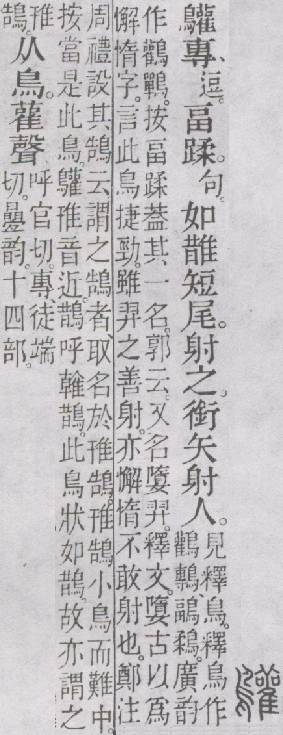 鸛
鸛專、逗。畐蹂。句。如䧿短尾。射之、銜矢射人。見釋鳥。釋鳥作
鸛鷒鶝鶔。廣韵
作鸛鷤。按畐蹂葢其一名。郭云。又名墮羿。釋文。墮古以爲
懈惰字。言此鳥捷勁。雖羿之善射。亦懈惰不敢射也。鄭注
周禮設其鵠云。謂之鵠者。取名於鳱鵠。鳱鵠小鳥而難中。
按當是此鳥。鸛鳱音近。鵲呼雗鵲。此鳥狀如鵲。故亦謂之
鳱鵠。从鳥雚聲。呼官切。專徒端
切。㬪韵。十四部。